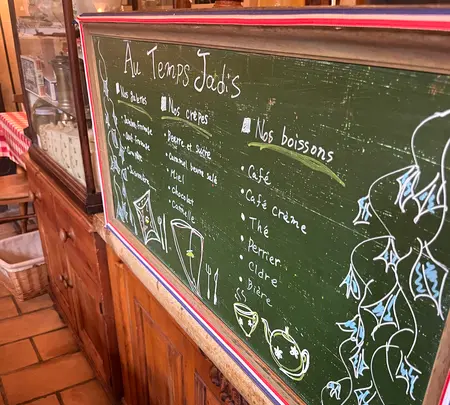 Au Temps Jadis
Nos galettes
Jambon fromage
Œuf fromage
Complète
Nos crêpes
Beurre et sucre
Caramel beurre salé
Miel
chocolat
Cannelle
Nos boissons
Café
Café crème
Thé
Perrier
Cidre
Bière